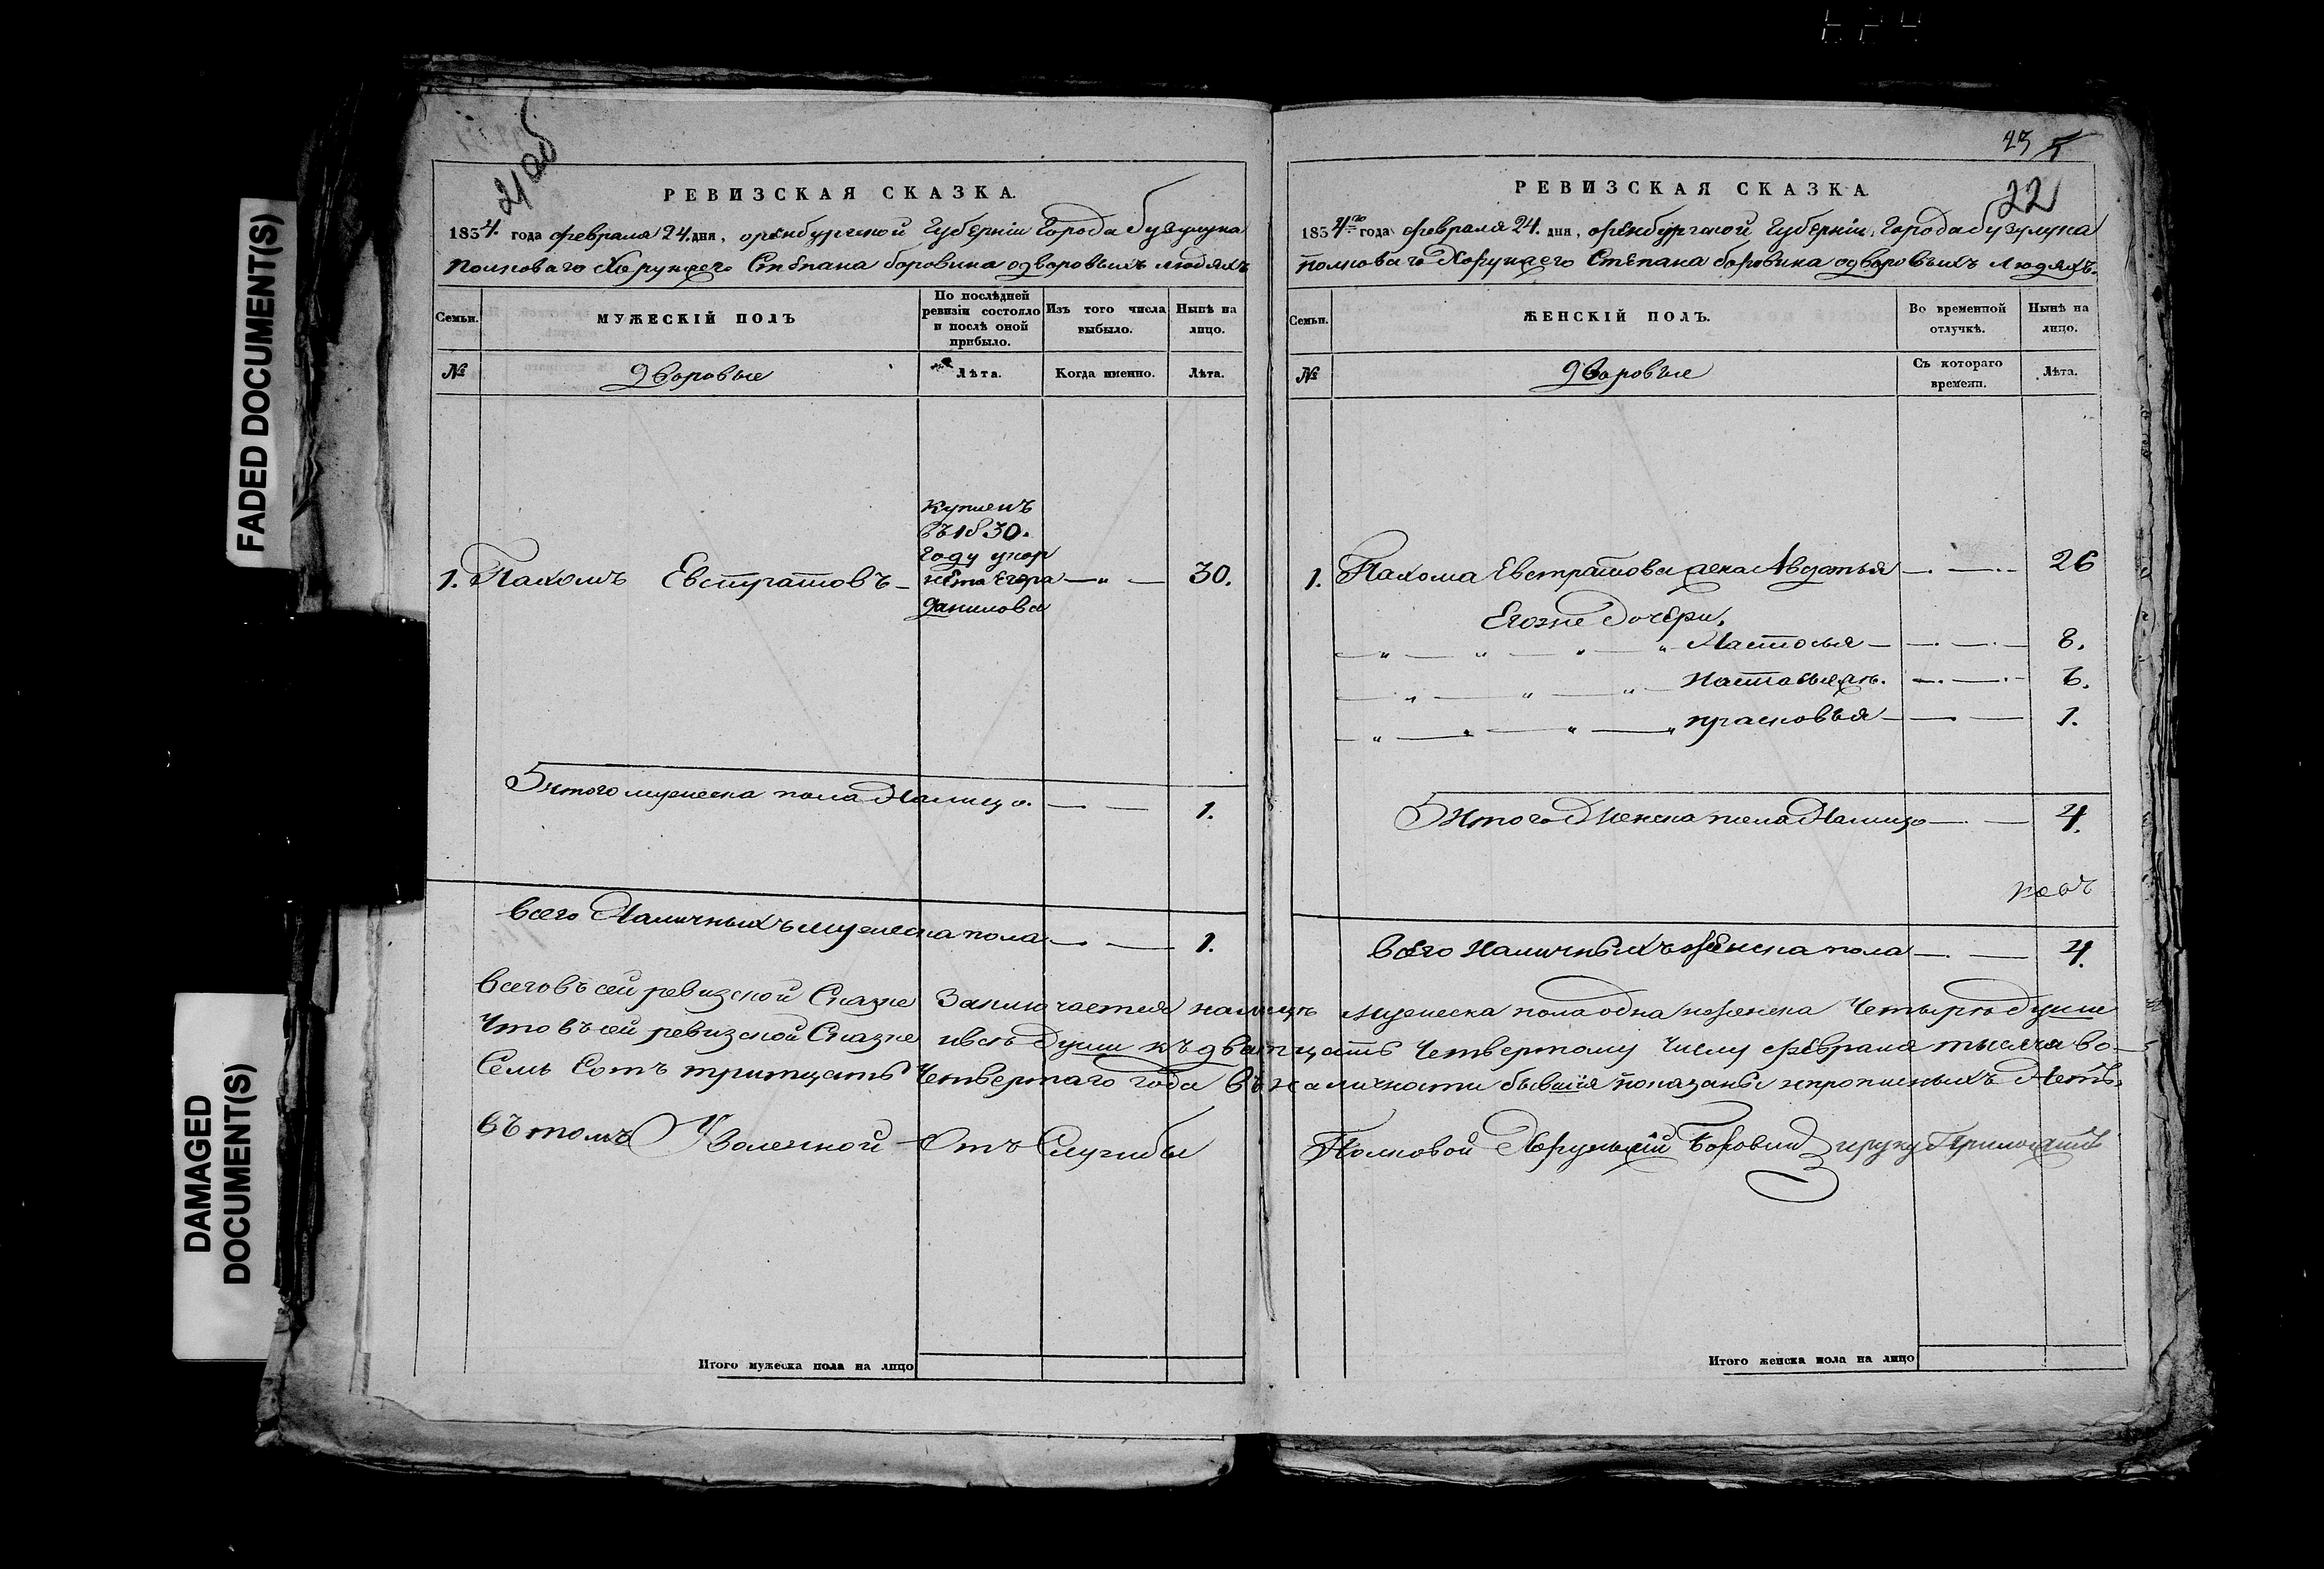 FADED DOCUMENT(S)
DAMAGED
DOCUMENT(S)
21 об
РЕВИЗСКАЯ СКАЗКА.
1834. года февраля 24. дня, оренбургской Губерніи Города бузулука
полковаго Хорунжего Степана боровина одворовыхъ людяхъ
Семьи.
МУЖЕСКІЙ ПОЛЪ
По послѣдней ревизіи состояло и послѣ оной прибыло.
Изъ того числа выбыло.
Нынѣ на лицо.
№
дворовые
Лѣта.
Когда именно.
Лѣта.
купленъ
въ 1830.
году укор
нета Егора
данилова
1. Пахомъ Евстратовъ — 30.
Итого мужеска пола На лицо. — 1.
всего Наличныхъ мужеска пола — 1.
23
22
РЕВИЗСКАЯ СКАЗКА
1834го года февраля 24. дня, оренбургской Губерніи, Города бузулука
полковаго Хорунжего Степана боровина одворовыхъ людяхъ.
Семьи.
ЖЕНСКІЙ ПОЛЪ.
Во временной отлучкѣ.
Нынѣ на лицо.
№
дворовые
Съ котораго времени.
Лѣта.
1. Пахома Евстратова жена Авдотья — 26
Егоже Дочери,
Настосья — 8.
6.
прасковья — 1.
Итого Женска пола На лицо — 4.
всего наличныхъ женска пола — 4.
всего въ сей ревизской Сказке Заключается налицъ мужеска пола одна женска Четыре души
Что въ сей ревизской Сказке все Души къ дватцать Четвертому Числу февраля тысяча во-
Семь Сотъ тритцать Четвертаго года въ наличности бывшія показаны и прописныхъ Нетъ.
въ томъ Уволенной Отъ Службы Полковой Хорунжій Боровин и руку Приложилъ
Итого мужеска пола на лицо
Итого женска пола на лицо